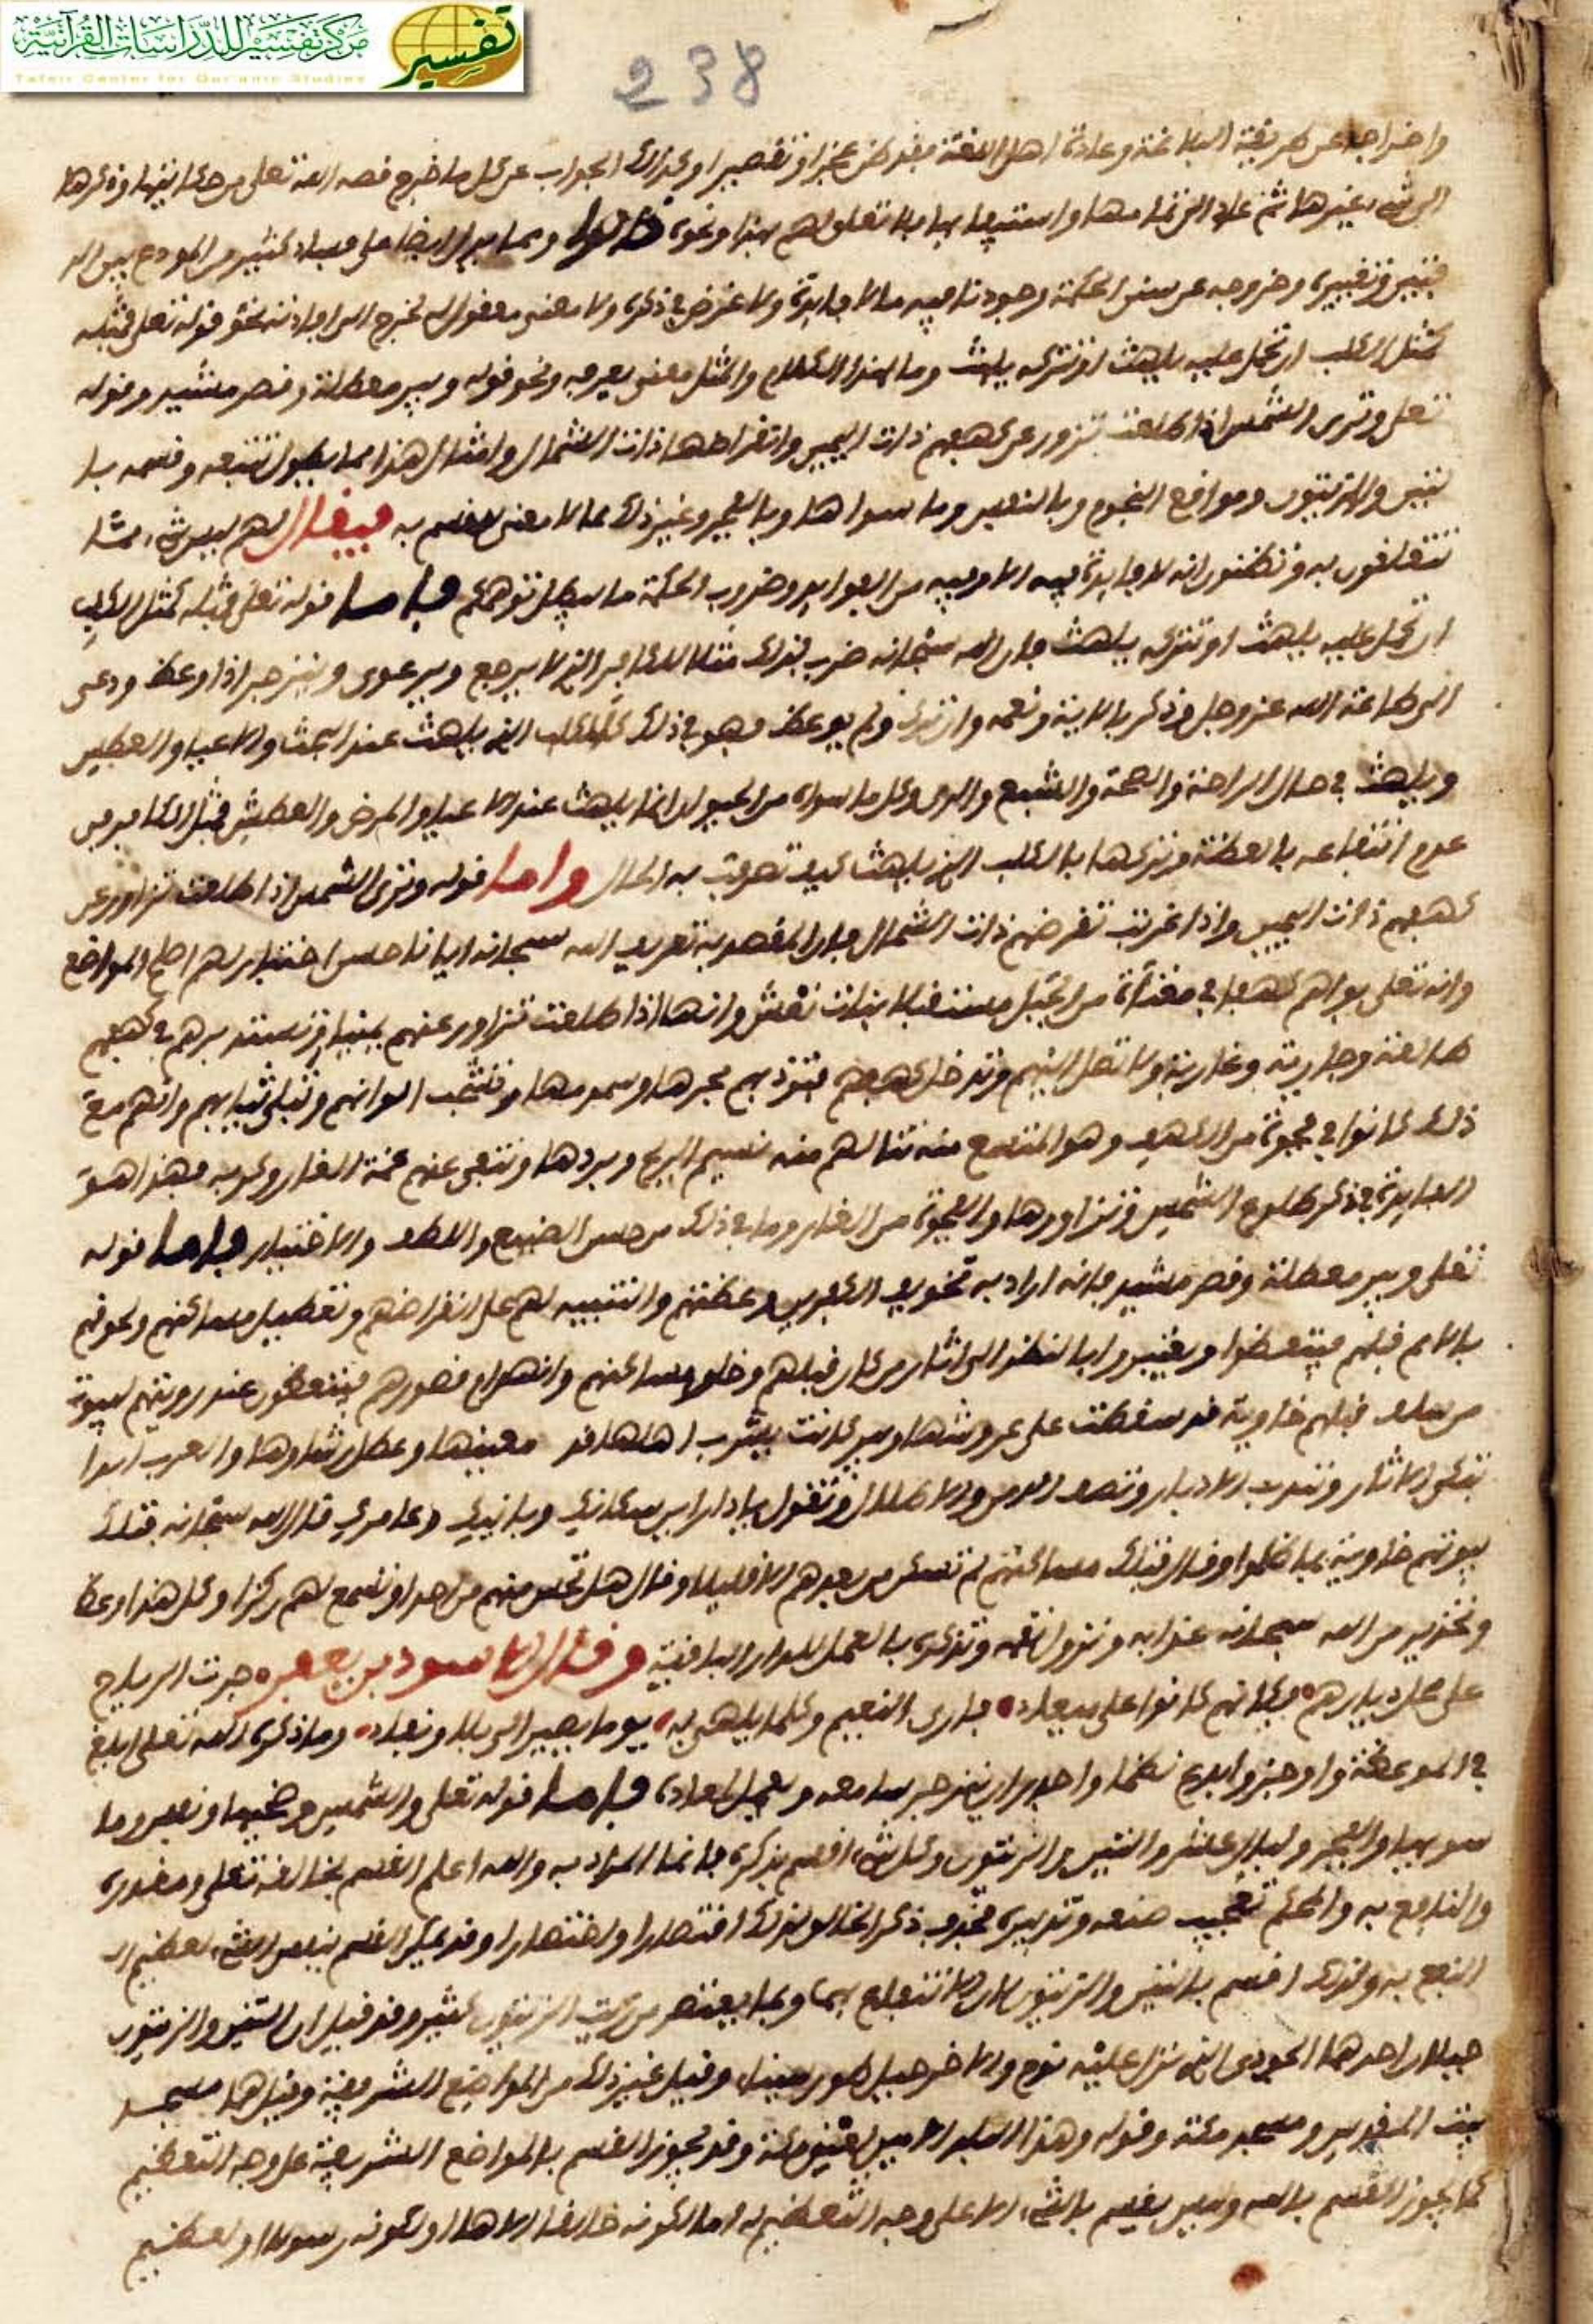 مركز تفسير للدراسات القرآنية
Tafsir Center for Qur'anic Studies
تفسير
238
واخراجه عن طريقة البلاغة وعادة اهل اللغة فقد ظن عجزا وتقصيرا وكذلك الجواب عن كل ما خرج فصه الله تعلى من حكايتها وذكرها
الى شيء غيرها ثم عاد الى تمامها واستيفايها فلا تعلق لهم بهذا ونحوه ومما يدل ايضا على فساد كثير من المودع بين الد
فتين وتغييره وخروجه عن سنن الحكمة وجودنا فيه ما لا فايدة ولا غرض في ذكره ولا معنى معقول له يخرج الى افادته نحو قوله تعلى فمثله
كمثل الكلب ان تحمل عليه يلهث او تتركه يلهث وما لهذا الكلام والمثل معنى يعرفه ونحو قوله وبير معطلة وقصر مشيد وقوله
تعلى وترى الشمس اذا طلعت تزور عن كهفهم ذات اليمين وانقراضها ذات الشمال وامثال هذا مما يطول تتبعه وقسمه بالـ
ـتين والزيتون ومواقع النجوم وبالنفس وما سواها وبالفجر وغير ذلك مما لا معنى للقسم به فيقال لهم ليس شيء مما
تتعلقون به وتظنون انه لا فايدة فيه الا وفيه من الفوايد وضروب الحكمة ما يبطل توهمكم فاما قوله تعلى فمثله كمثل الكلب
ان تحمل عليه يلهث او تتركه يلهث فان الله سبحانه ضرب بذلك مثلا للكافر الذي لا يرجع ويرعوى وينزجر اذا وعظ ودعى
الى طاعة الله عز وجل وذكر بالاينه ونعمه وان ترك ولم يوعظ فهو في ذلك كالكلب الذي يلهث عند البحث والاعيا والعطش
ويلهث في حال الراحة والصحة والشبع والرى وكل ما سواه من الحيوان انما يلهث عند الاعياء والمرض والعطش فمثل الكافر في
عدم انتفاعه بالعظة وتركها بالكلب الذي يلهث كيف تصرفت به الحال واما قوله وترى الشمس اذا طلعت تزاور عن
كهفهم ذات اليمين واذا غربت تقرضهم ذات الشمال فان المقصد به تعريف الله سبحانه ايانا حسن اختياره لهم اصلح المواضع
وانه تعلى بواهم كهفا في مقناة من الجبل مستقبلا بنات نعش وانها اذا طلعت تزاور عنهم يمينا وتستدبرهم في كهفهم
طالعة وجارية وغاربة ولا تصل اليهم وتدخل كهفهم فتوذيهم بحرها وسمومها وتشحب الوانهم وتبلى ثيابهم وانهم مع
ذلك كانوا في فجوة من الكهف وهو المتسع منه تنالهم منه نسيم الريح وبردها وتنفى عنهم غمة الغار وكربه فهذا هو
الفايدة في ذكر طلوع الشمس وتزاورها والفجوة من الغار وما في ذلك من حسن الصنيع واللطف والاختيار فاما قوله
تعلى وبير معطلة وقصر مشيد فانه اراد به تخويف الكفرين وعظتهم والتنبيه لهم على انقراضهم وتعطيل مساكنهم ولحوقهم
بالامم قبلهم فيتعظوا ويعتبروا بالنظر الى اثار من كان قبلهم وخلو مساكنهم وانهدام قصورهم فيتعظون عند رويتهم لبيوت
من سلف قبلهم خاوية قد سقطت على عروشها وبير كانت يشرب اهلها قد معينها وعطل رشاوها والعرب ابدا
تبكى الاثار وتندب الديار وتصف الدمن والاطلال وتقول يا دار اين سكانك وبانيك وعامرك قال الله سبحانه فتلك
بيوتهم خاوية بما ظلموا وقال فتلك مساكنهم لم تسكن من بعدهم الا قليلا وقال هل تحس منهم من احد او تسمع لهم ركزا وكل هذا وعظ
وتحذير من الله سبحانه عذابه ونزول نقمه وتذكرة بالعمل للدار الباقية وقال الاسود بن يعفر جرت الرياح
على محل ديارهم فكانهم كانوا على ميعاد فارى النعيم وكلما يلهى به يوما يصير الى بلا ونفاد وما ذكره الله تعلى ابلغ
في الموعظة واوجز وابدع نظما واجدر ان ينزجر سامعه ويعمل لمعاده فاما قوله تعلى والشمس وضحيها ونفس وما
سويها والفجر وليال عشر والتين والزيتون وكل شيء اقسم بذكره فانما المراد به والله اعلم القسم بخالقه تعلى ومقدره
والنافع به والمحكم تعجيب صنعه وتدبيره فحذف ذكر الخالق لذلك اقتصارا واختصارا وقد يكون القسم بنفس الشيء لعظيم الـ
النفع به ولذلك اقسم بالتين والزيتون لان الانتفاع بهما وبما يعتصر من زيت الزيتون كثير وقد قيل ان التين والزيتون
جبلان احدهما الجودى الذي نزل عليه نوح والاخر جبل طور سينا وقيل غير ذلك من المواضع الشريفة وقيل هما مسجد
بيت المقدس ومسجد مكة وقوله وهذا البلد الامين يعنى مكة وقد يجوز القسم بالمواضع الشريفة على وجه التعظيم
كما يجوز القسم بالله وليس يقسم بالشيء الا على وجه التعظيم له اما لكونه خالقا الاها او لكونه رسولا او لعظيم